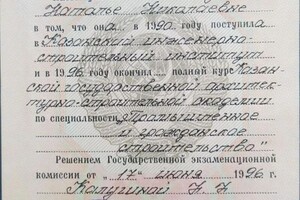 Наталье Николаевне
в том, что она в 1990 году поступила
в Казанский инженерно-
строительный институт
и в 1996 году окончила полный курс Казан-
ской государственной архитек-
турно-строительной академии
по специальности „Промышленное
и гражданское
строительство"
Решением Государственной экзаменационной
комиссии от „17" июня 1996 г.
Калугиной Н. Н